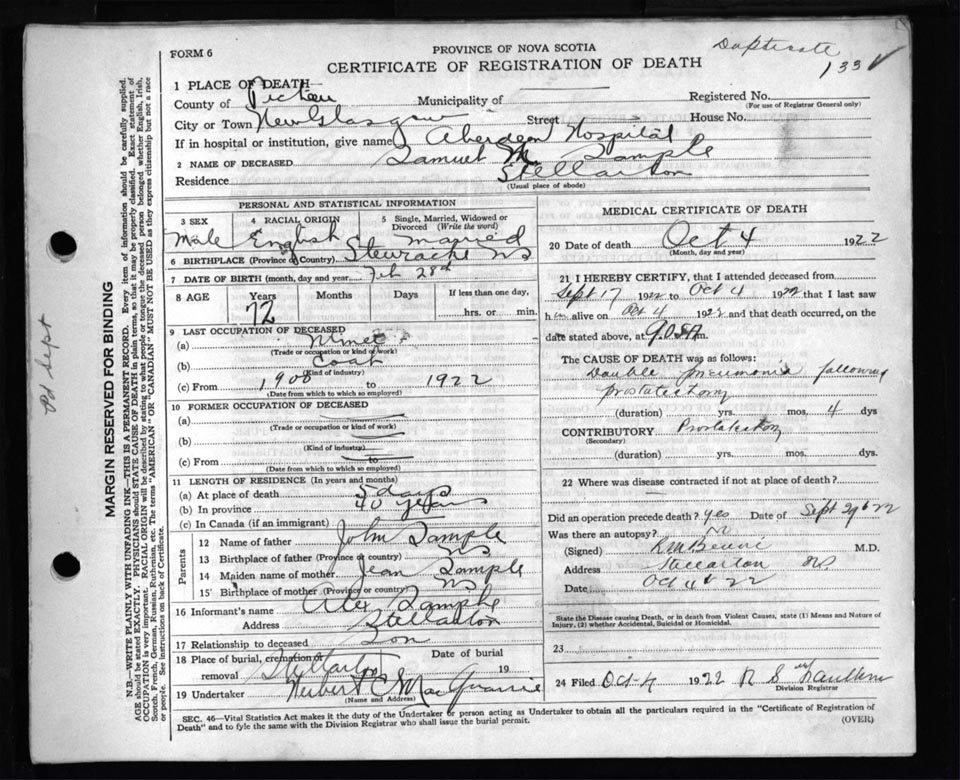 FORM 6
PROVINCE OF NOVA SCOTIA
CERTIFICATE OF REGISTRATION OF DEATH
133
1 PLACE OF DEATH
County of Pictou Municipality of Registered No.
(For use of Registrar General only)
City or Town New Glasgow Street House No.
If in hospital or institution, give name Aberdeen Hospital
2 NAME OF DECEASED Samuel M. Sample
Residence Stellarton
(Usual place of abode)
MARGIN RESERVED FOR BINDING
N.B.—WRITE PLAINLY WITH UNFADING INK—THIS IS A PERMANENT RECORD. Every item of information should be carefully supplied.
AGE should be stated EXACTLY. PHYSICIANS should STATE CAUSE OF DEATH in plain terms, so that it may be properly classified. Exact statement of
OCCUPATION is very important. RACIAL ORIGIN will be described by stating to what people or tongue the deceased person belonged whether English, Irish,
Scotch, French, German, Russian, Ruthenian, etc. The terms "AMERICAN" or "CANADIAN" MUST NOT BE USED as they express citizenship but not a race
or people. See instructions on back of Certificate.
PERSONAL AND STATISTICAL INFORMATION
3 SEX 4 RACIAL ORIGIN 5 Single, Married, Widowed or
Divorced (Write the word)
Male English married
6 BIRTHPLACE (Province or Country) NS
7 DATE OF BIRTH (month, day and year) Feb 28th
8 AGE Years Months Days If less than one day,
72 hrs. or min.
9 LAST OCCUPATION OF DECEASED
(a) Miner
(Trade or occupation or kind of work)
(b) Coal
(Kind of industry)
(c) From 1900 to 1922
(Date from which to which so employed)
10 FORMER OCCUPATION OF DECEASED
(a)
(Trade or occupation or kind of work)
(b)
(Kind of industry)
(c) From to
(Date from which to which so employed)
11 LENGTH OF RESIDENCE (In years and months)
(a) At place of death 5 days
(b) In province 40 years
(c) In Canada (if an immigrant)
Parents
12 Name of father John Sample
13 Birthplace of father (Province or country) NS
14 Maiden name of mother Jean Sample
15 Birthplace of mother (Province or country) NS
16 Informant's name Alex Sample
Address Stellarton
17 Relationship to deceased Son
18 Place of burial, cremation or Date of burial
removal Stellarton 19
19 Undertaker Herbert C MacQuarrie
(Name and Address)
MEDICAL CERTIFICATE OF DEATH
20 Date of death Oct 4 1922
(Month, day and year)
21 I HEREBY CERTIFY, that I attended deceased from
Sept 17 1922 to Oct 4 1922 that I last saw
h alive on Oct 4 1922 and that death occurred, on
date stated above, at m.
The CAUSE OF DEATH was as follows:
Double Pneumonia following
Prostatectomy
(duration) yrs. mos. 4 dys
CONTRIBUTORY Prostatectomy
(Secondary)
(duration) yrs. mos. dys.
22 Where was disease contracted if not at place of death?
Did an operation precede death? yes Date of Sept 29th 22
Was there an autopsy? No
(Signed) M.D.
Address Stellarton NS
Date Oct 4th 22
State the Disease causing Death, or in death from Violent Causes, state (1) Means and Nature of
Injury, (2) whether Accidental, Suicidal or Homicidal.
23
24 Filed Oct 4 1922
Division Registrar
SEC. 46—Vital Statistics Act makes it the duty of the Undertaker or person acting as Undertaker to obtain all the particulars required in the "Certificate of Registration of
Death" and to fyle the same with the Division Registrar who shall issue the burial permit.
(OVER)